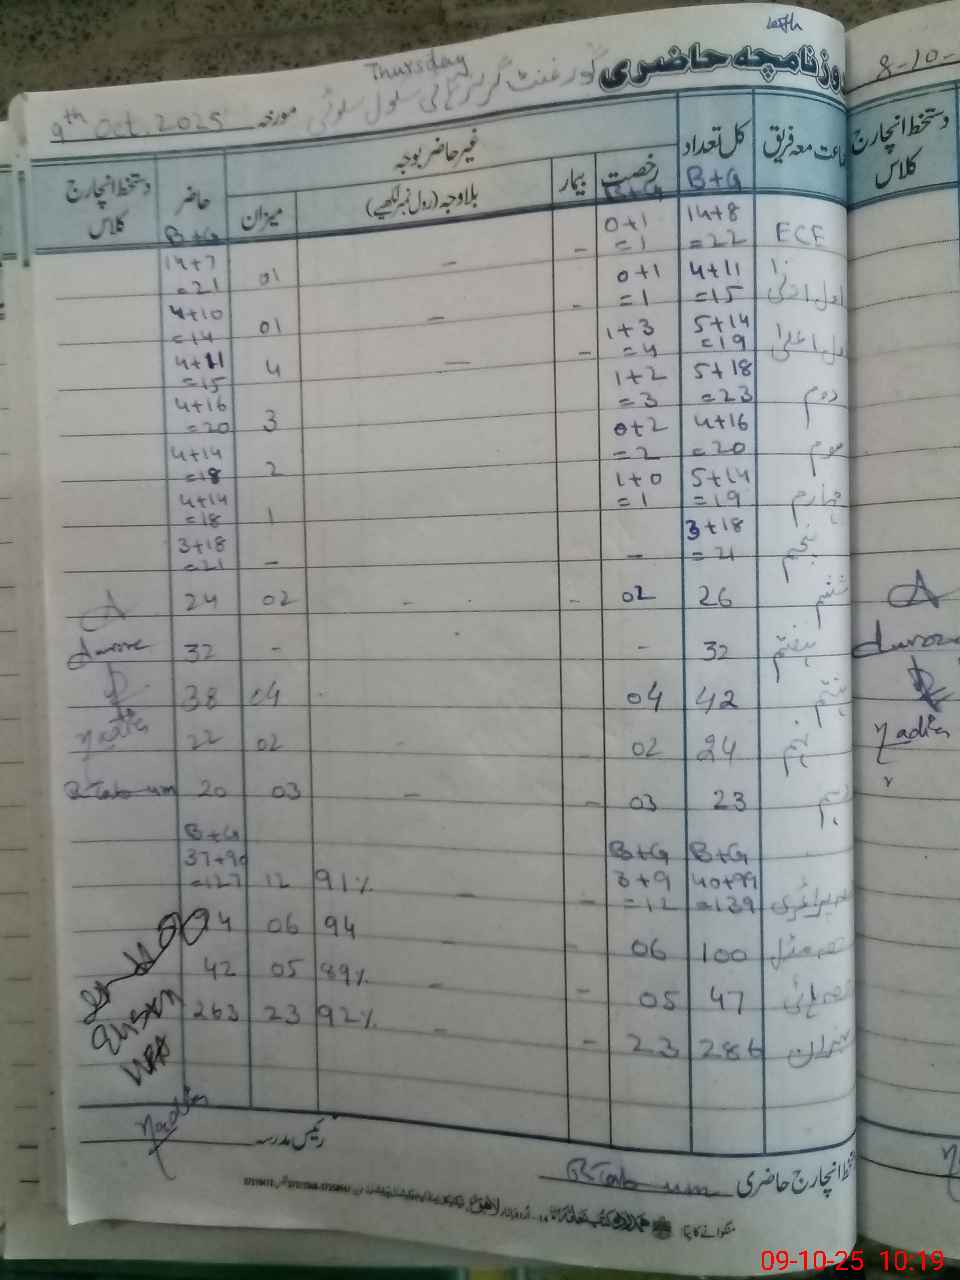 روزنامچہ حاضری گورنمنٹ گرلز ہائی سکول
Thursday
مورخہ 9th Oct. 2025
جماعت معہ فریق | کل تعداد B+G | غیر حاضر بوجہ | رخصت B+G | بیمار | بلاوجہ (رول نمبر لکھیے) | میزان | حاضر B+G | دستخط انچارج کلاس
ECE | 14+8 =22 | 0+1 =1 | - | - | 01 | 14+7 =21
اول ادنیٰ | 4+11 =15 | 0+1 =1 | - | - | 01 | 4+10 =14
اول اعلیٰ | 5+14 =19 | 1+3 =4 | - | - | 4 | 4+11 =15
دوم | 5+18 =23 | 1+2 =3 | 3 | 4+16 =20
سوم | 4+16 =20 | 0+2 =2 | 2 | 4+14 =18
چہارم | 5+14 =19 | 1+0 =1 | 1 | 4+14 =18
پنجم | 3+18 =21 | - | - | 3+18 =21
ششم | 26 | 02 | - | - | 02 | 24
ہفتم | 32 | - | - | 32
ہشتم | 42 | 04 | 04 | 38
نہم | 24 | 02 | - | 02 | 22 | Nadia
دہم | 23 | 03 | - | - | 03 | 20
B+G | B+G | B+G
حصہ پرائمری | 40+99 =139 | 3+9 =12 | - | - | 91% | 12 | 37+90 =127
حصہ مڈل | 100 | 06 | - | - | 94 | 06 | 94
حصہ ہائی | 47 | 05 | - | - | 89% | 05 | 42
میزان | 286 | 23 | - | - | 92% | 23 | 263
رئیس مدرسہ Nadia
دستخط انچارج حاضری
8-10-
دستخط انچارج کلاس
Nadia
09-10-25 10:19